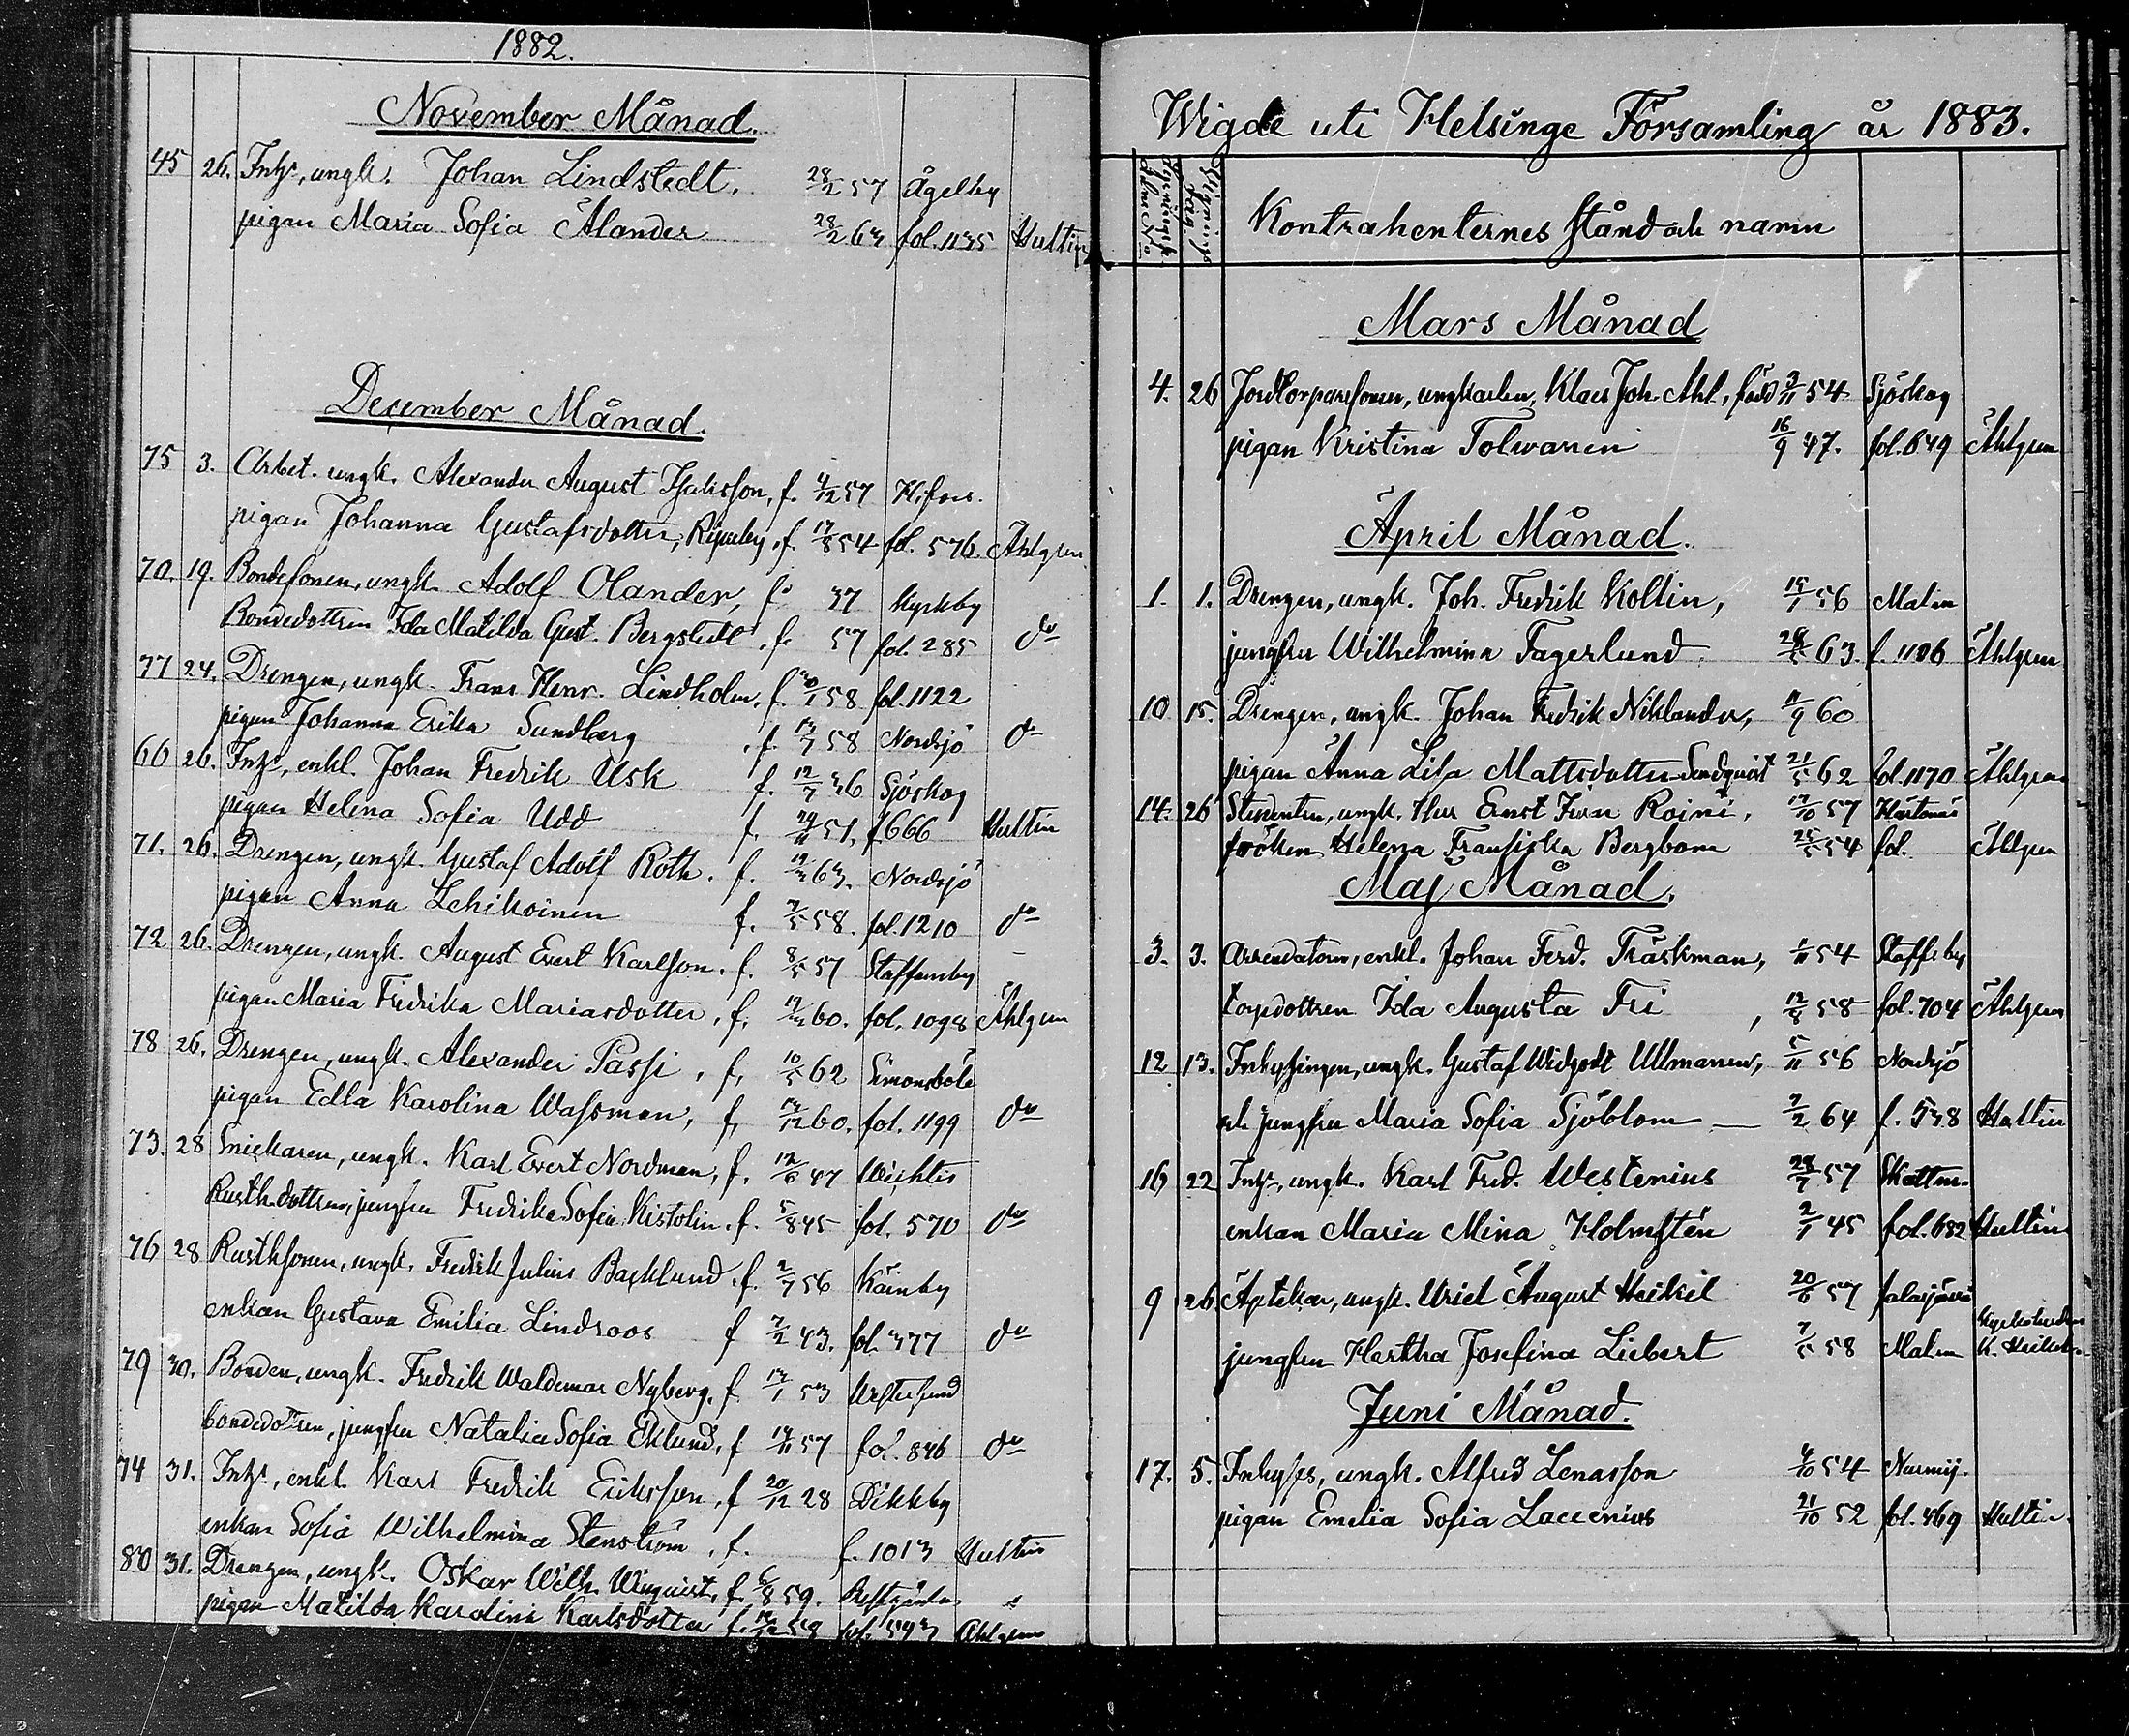 1882.
November Månad.
45 26. Inhs, ungk. Johan Lindstedt. 28/2 57 Ågelby
pigan Maria Sofia Ålander 28/2 63 fol. 1135 Hultin
December Månad.
75 3. Arbet. ungk. Alexander August Isaksson, f. 4/12 57 H.fors.
pigan Johanna Gustafsdotter, f. 17/8 54 fol. 576. Åhlgren
70. 19. Bondesonen, ungk. Adolf Olander, f. 37 Kyrkby
Bondedottren Ida Matilda Gust. Bergstedt, f. 57 fol. 285 do
77 24. Drengen, ungk. Frans Henr. Lindholm, f. 58 fol. 1122
pigan Johanna Erika Sundberg, f. 58 Nordsjö do
66 26. Inhs, enkl. Johan Fredrik Usk f. 12/7 36 Sjöskog
pigan Helena Sofia Udd f. 29/11 51. f 666 Hultin
71. 26. Drengen, ungk. Gustaf Adolf Roth. f. 63. Nordsjö
pigan Anna Lehikoinen f. 7/5 58. fol. 1210 do
72 26. Drengen, ungk. August Evert Karlsson. f. 8/5 57 Staffansby
pigan Maria Fredrika Mariasdotter, f. 60. fol. 1098 Åhlgren
78 26. Drengen, ungk. Alexander Passi, f. 10/5 62 Simonsböle
pigan Edla Karolina Wassman, f. 60. fol. 1199 do
73. 28 Snickaren, ungk. Karl Evert Nordman, f. 12/6 47 Wichtis
Rusth.dottren, jungfru Fredrika Sofia Kistolin. f. 5/8 45 fol. 570 do
76 28 Rusthsonen, ungk. Fredrik Julius Backlund. f. 2/7 56 Känby
enkan Gustava Emilia Lindroos f 7/2 43. fol. 377 do
79 30. Bonden, ungk. Fredrik Waldemar Nyberg. f. 53 Westersund
bondedottren, jungfru Natalia Sofia Eklund, f 57 fol. 846 do
74 31. Inhs, enkl. Karl Fredrik Eriksson. f 20/12 28 Dikkby
enkan Sofia Wilhelmina Stenström, f. f. 1013 Hultin
80 31. Drengen, ungk. Oskar Wilh. Winquist, f. 6/8 59.
pigan Matilda Karolina Karlsdotter f. 58 fol. 593 Åhlgren
Wigde uti Helsinge Församling år 1883.
Kontrahenternes stånd och namn
Mars Månad
4. 26 Jordtorparesonen, ungkarlen, Klaes Joh. Ahl, född 54 Sjöskog
pigan Kristina Tolwanen 16/9 47. fol. 649 Åhlgren
April Månad.
1. 1. Drengen, ungk. Joh. Fredrik Koltin, 56 Malm
jungfru Wilhelmina Fagerlund 63. f. 1186 Åhlgren
10 15. Drengen, ungk. Johan Fredrik Niklander, 11/9 60
pigan Anna Lisa Mattsdotter Sundquist 21/5 62 fol. 1170 Åhlgren
14. 26 Studenten, ungk. Herr Ernst Roini, 17/10 57
fröken Helena Fransiska Bergbom 25/5 54 fol. Åhlgren
Maj Månad.
3. 3. Arrendatorn, enkl. Johan Ferd. Träskman, 54 Staffsby
torpdottren Ida Augusta Fri, 12/8 58 fol. 704 Åhlgren
12 13. Inhysingen, ungk. Gustaf Widgodt Ullmanen, 5/11 56 Nordsjö
och jungfru Maria Sofia Sjöblom 7/2 64 f. 538 Hultin
16 22 Inhs, ungk. Karl Fred. Westenius 28/7 57 Skattm.
enkan Maria Mina Holmstén 2/1 45 fol. 682 Hultin
9 26 Aptekar, ungk. Uriel August Heikel 20/6 57 Jalasjärvi
jungfru Hertha Josefina Liebert 58 Malm K. Heikel
Juni Månad.
17. 5. Inhyses, ungk. Alfred Lenasson 54 Nurmij.
pigan Emelia Sofia Laccenius 21/10 52 fol. 469 Hultin.